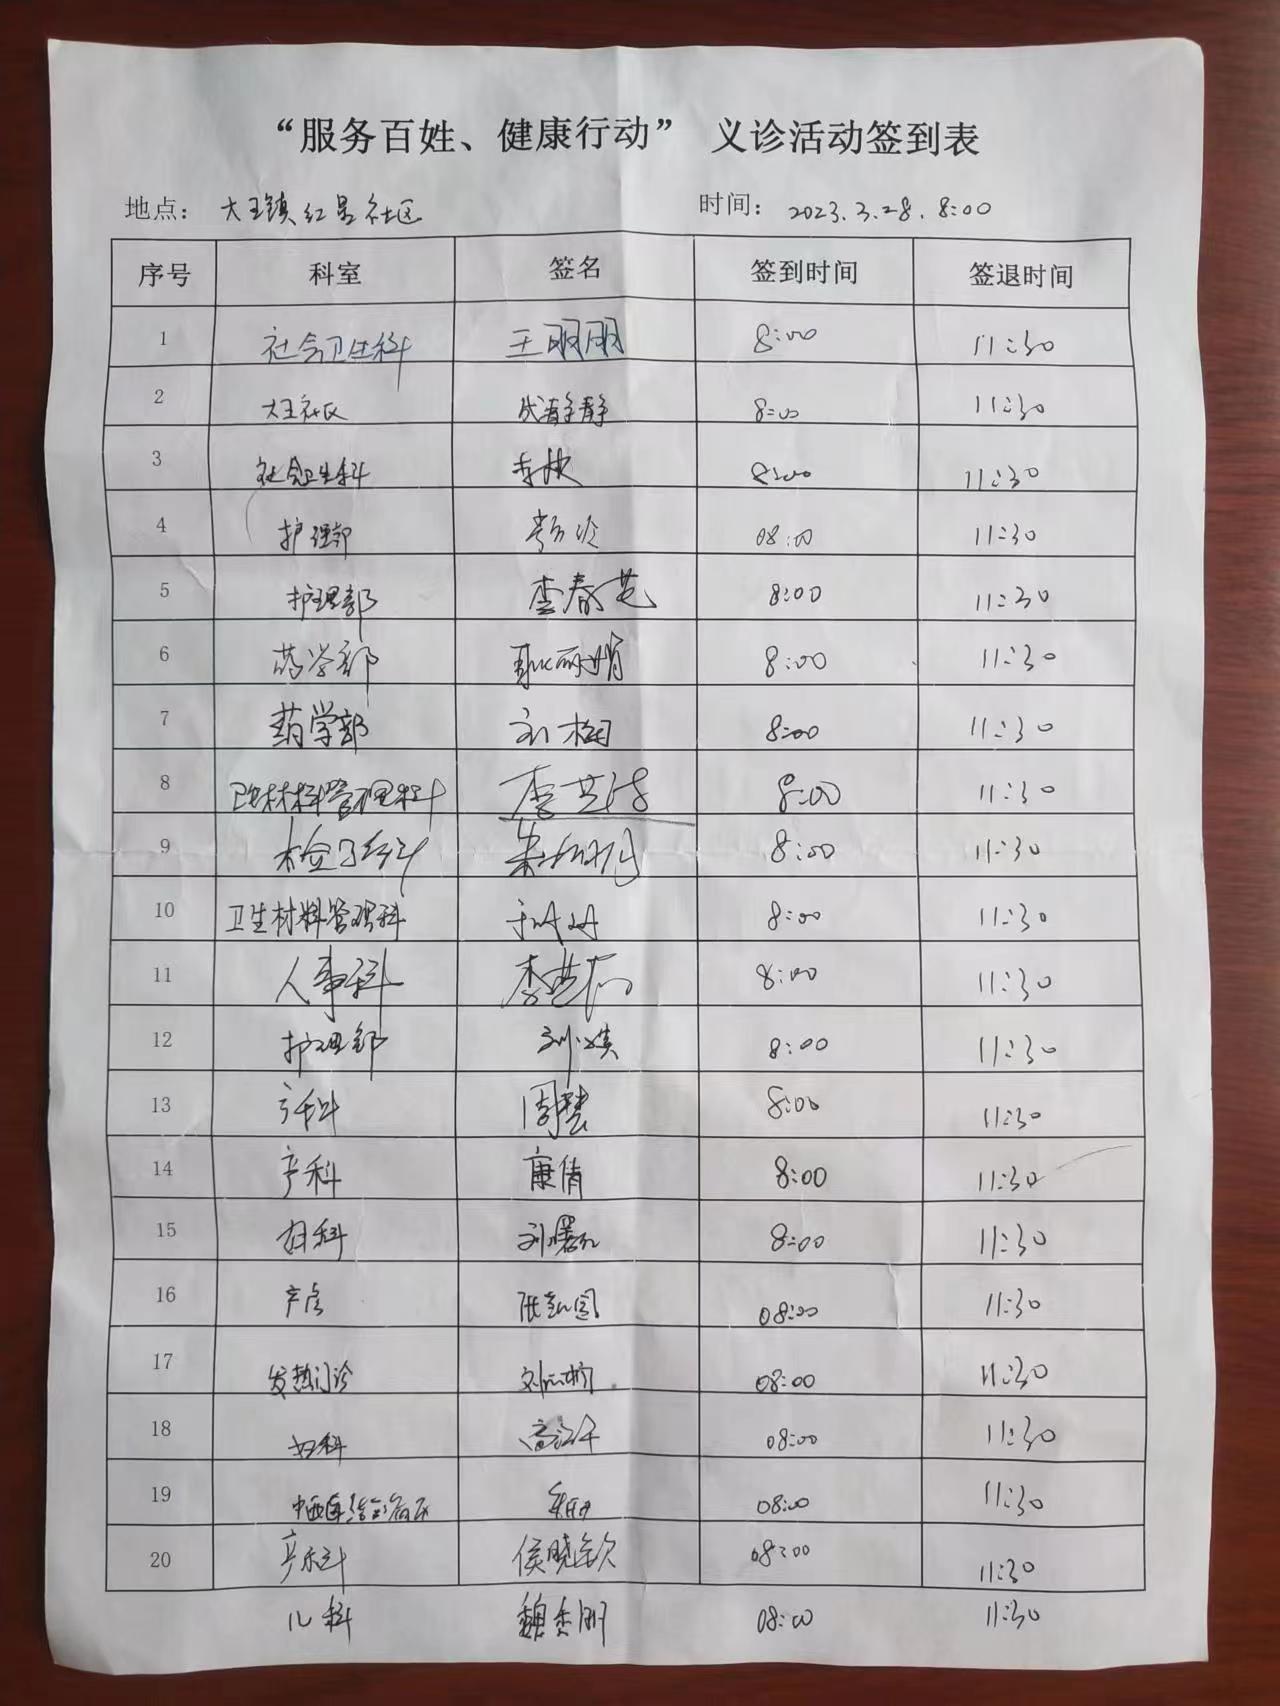 “服务百姓、健康行动” 义诊活动签到表
地点： 大王镇红星社区 时间： 2023.3.28. 8:00
序号 科室 签名 签到时间 签退时间
1 社会卫生科 王朋朋 8:00 11:30
2 大王社区 成静静 8:00 11:30
3 社会卫生科 8:00 11:30
4 护理部 08:00 11:30
5 护理部 李春芝 8:00 11:30
6 药学部 耿丽娟 8:00 11:30
7 药学部 刘 8:00 11:30
8 卫生材料管理科 李 8:00 11:30
9 检验科 朱 8:00 11:30
10 卫生材料管理科 8:00 11:30
11 人事科 李 8:00 11:30
12 护理部 刘 8:00 11:30
13 产科 周慧 8:00 11:30
14 产科 康倩 8:00 11:30
15 妇科 刘 8:00 11:30
16 产房 张 08:00 11:30
17 发热门诊 刘 08:00 11:30
18 妇科 08:00 11:30
19 08:00 11:30
20 产科 侯晓钦 08:00 11:30
儿科 魏秀朋 08:00 11:30